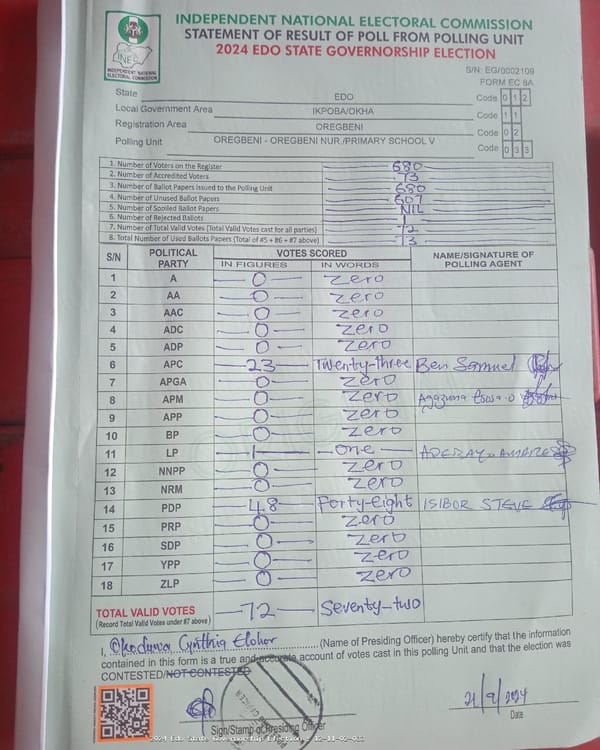 INDEPENDENT NATIONAL ELECTORAL COMMISSION
STATEMENT OF RESULT OF POLL FROM POLLING UNIT
2024 EDO STATE GOVERNORSHIP ELECTION
INEC
INDEPENDENT NATIONAL
ELECTORAL COMMISSION
S/N: EG/0002109
FORM EC 8A
State EDO Code 0 1 2
Local Government Area IKPOBA/OKHA Code 1 1
Registration Area OREGBENI Code 0 2
Polling Unit OREGBENI - OREGBENI NUR./PRIMARY SCHOOL V Code 0 3 3
1. Number of Voters on the Register 680
2. Number of Accredited Voters 73
3. Number of Ballot Papers Issued to the Polling Unit 680
4. Number of Unused Ballot Papers 607
5. Number of Spoiled Ballot Papers NIL
6. Number of Rejected Ballots 1
7. Number of Total Valid Votes (Total Valid Votes cast for all parties) 72
8. Total Number of Used Ballots Papers (Total of #5 + #6 + #7 above) 73
S/N POLITICAL PARTY VOTES SCORED NAME/SIGNATURE OF POLLING AGENT
IN FIGURES IN WORDS
1 A 0 Zero
2 AA 0 Zero
3 AAC 0 Zero
4 ADC 0 Zero
5 ADP 0 Zero
6 APC 23 Twenty-three Ben Samuel
7 APGA 0 Zero
8 APM 0 Zero
9 APP 0 Zero
10 BP 0 Zero
11 LP 1 One
12 NNPP 0 Zero
13 NRM 0 Zero
14 PDP 48 Forty-eight ISIBOR STEVE
15 PRP 0 Zero
16 SDP 0 Zero
17 YPP 0 Zero
18 ZLP 0 Zero
TOTAL VALID VOTES 72 Seventy-two
(Record Total Valid Votes under #7 above)
I, Cynthia (Name of Presiding Officer) hereby certify that the information
contained in this form is a true and accurate account of votes cast in this polling Unit and that the election was
CONTESTED/NOT CONTESTED
21/9/2024
Sign/Stamp of Presiding Officer Date
2024 Edo State Governorship Election